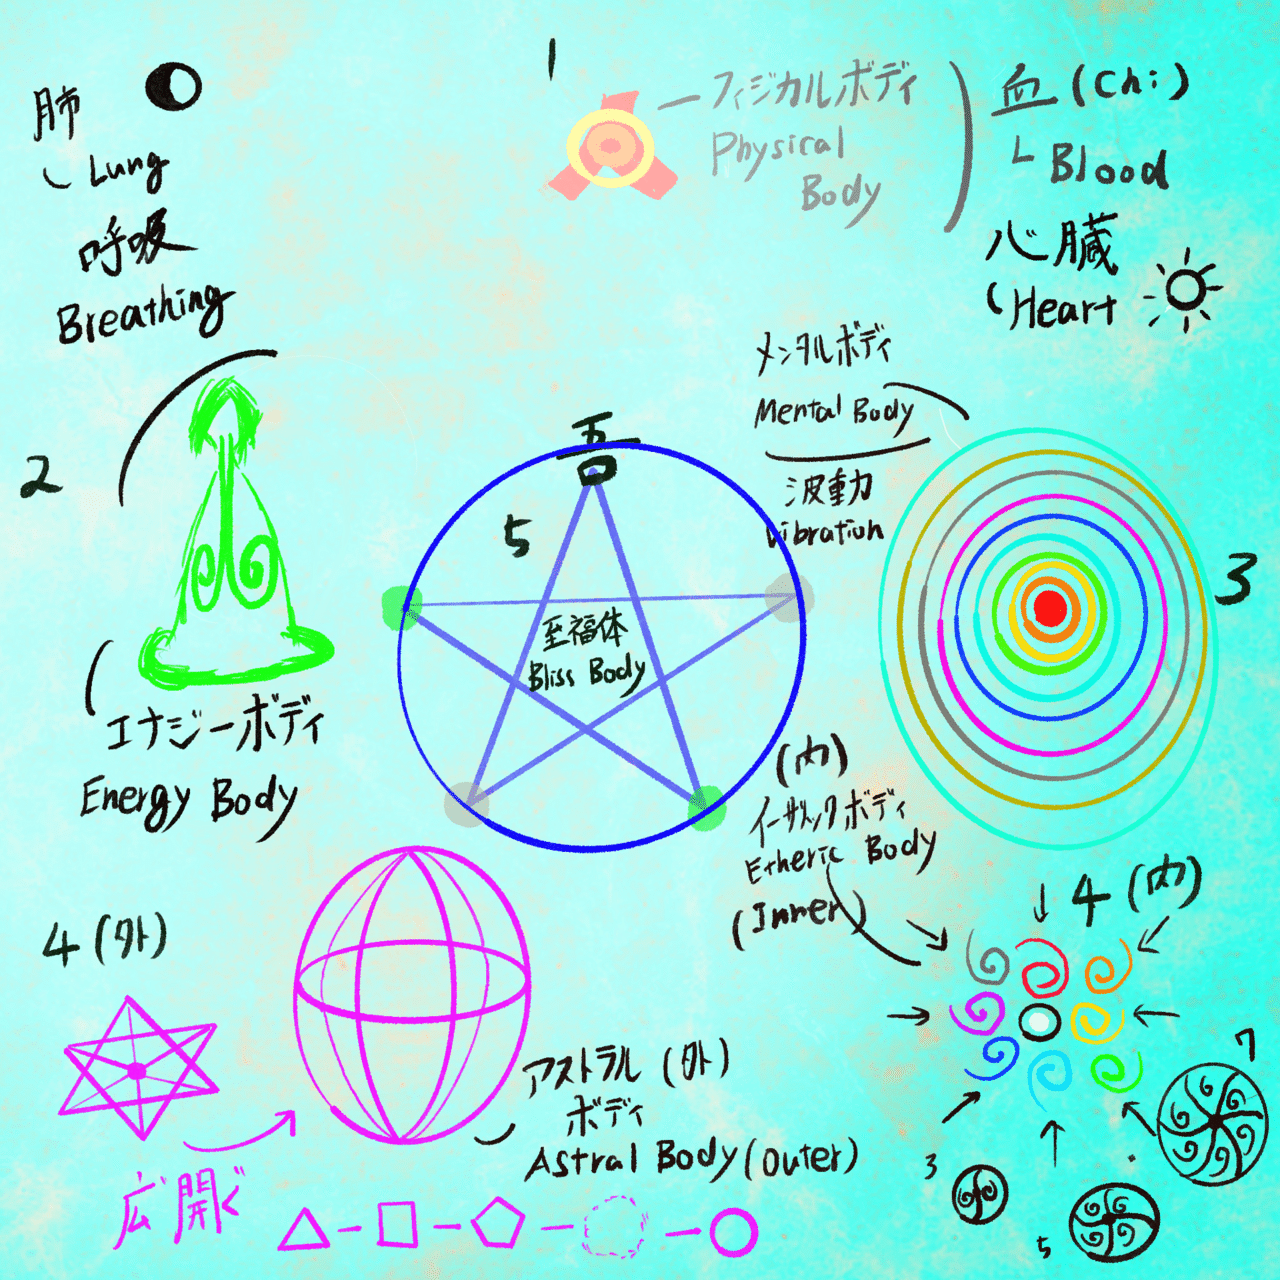 1
フィジカルボディ
Physical
Body
血 (Chi)
Blood
心臓
Heart
肺
Lung
呼吸
Breathing
2
エナジーボディ
Energy Body
メンタルボディ
Mental Body
波動
Vibration
3
吾
5
至福体
Bliss Body
(内)
イーサリックボディ
Etheric Body
(Inner)
4 (内)
4 (外)
アストラル (外)
ボディ
Astral Body (Outer)
7
3
5